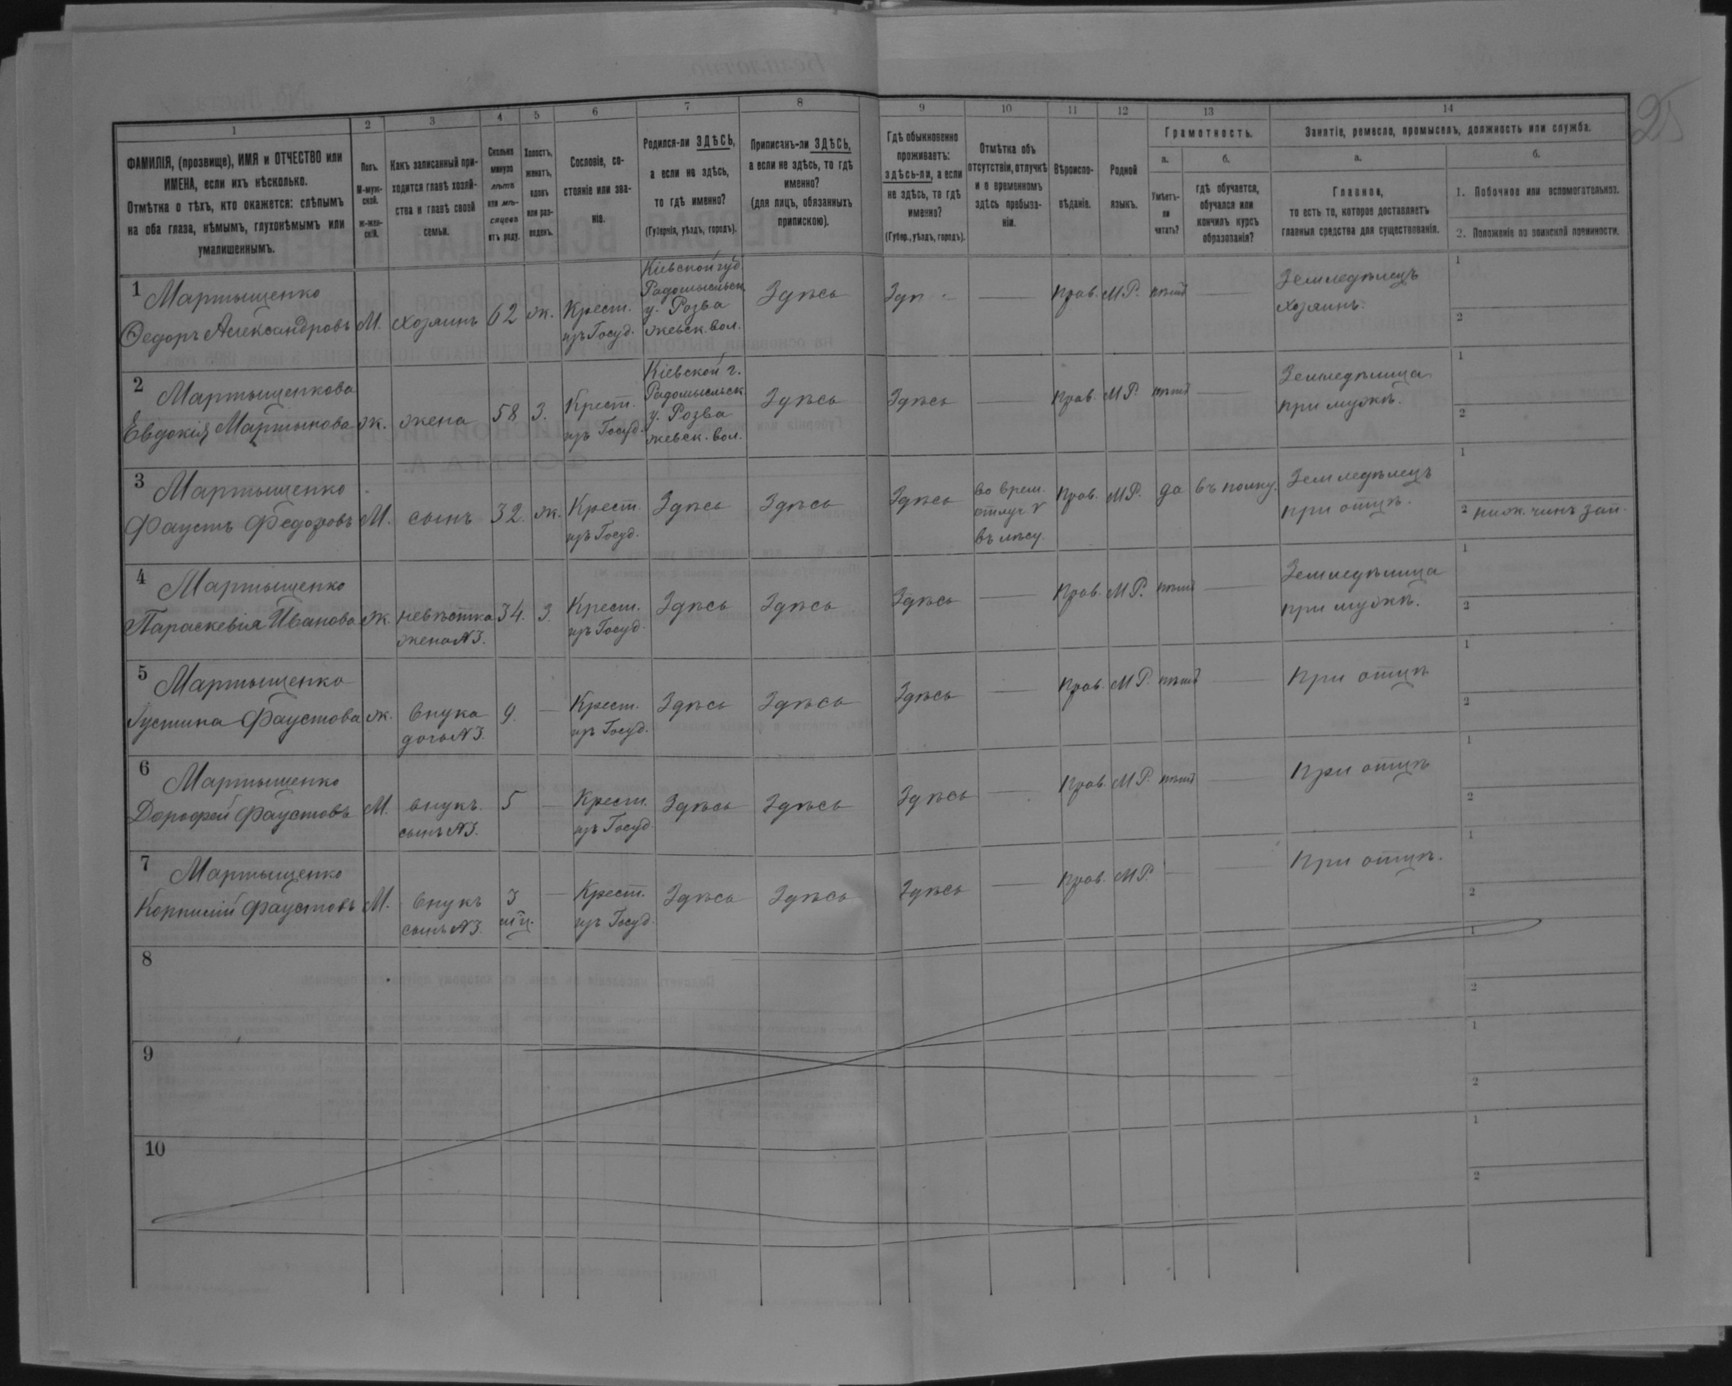 25
1 2 3 4 5 6 7 8 9 10 11 12 13 14
ФАМИЛІЯ, (прозвище), ИМЯ и ОТЧЕСТВО или
ИМЕНА, если ихъ нѣсколько.
Отмѣтка о тѣхъ, кто окажется: слѣпымъ
на оба глаза, нѣмымъ, глухонѣмымъ или
умалишеннымъ.
Полъ.
М-муж-
ской.
Ж-жен-
скій.
Какъ записанный при-
ходится главѣ хозяй-
ства и главѣ своей
семьи.
Сколько
минуло
лѣтъ
или мѣ-
сяцевъ
отъ роду.
Холостъ,
женатъ,
вдовъ
или раз-
веденъ.
Сословіе, со-
стояніе или зва-
ніе.
Родился-ли ЗДѢСЬ,
а если не здѣсь,
то гдѣ именно?
(Губернія, уѣздъ, городъ).
Приписанъ-ли ЗДѢСЬ,
а если не здѣсь, то гдѣ
именно?
(для лицъ, обязанныхъ
припискою).
Гдѣ обыкновенно
проживаетъ:
здѣсь-ли, а если
не здѣсь, то гдѣ
именно?
(Губер., уѣздъ, городъ).
Отмѣтка объ
отсутствіи, отлучкѣ
и о временномъ
здѣсь пребыва-
ніи.
Вѣроиспо-
вѣданіе.
Родной
языкъ.
Грамотность.
а.
Умѣетъ-
ли
читать?
б.
гдѣ обучается,
обучался или
кончилъ курсъ
образованія?
Занятіе, ремесло, промыселъ, должность или служба.
а.
Главное,
то есть то, которое доставляетъ
главныя средства для существованія.
б.
1. Побочное или вспомогательное.
2. Положеніе по воинской повинности.
1 Мартыщенко
Ѳедоръ Александровъ М. хозяинъ 62 ж. Крест.
изъ Госуд.
Кіевской губ
Радомысльск
у. Розва
жевск. вол.
Здѣсь Здѣ - — Прав. М.Р. нѣтъ —
Земледѣлецъ
хозяинъ.
1
2
2 Мартыщенкова
Евдокія Мартынова ж. жена 58 З. Крест.
изъ Госуд.
Кіевской г.
Радомысльск
у. Розва
жевск. вол.
Здѣсь Здѣсь — Прав. М.Р. нѣтъ —
Земледѣлица
при мужѣ.
1
2
3 Мартыщенко
Фаустъ Федоровъ М. сынъ 32. ж. Крест.
изъ Госуд.
Здѣсь Здѣсь Здѣсь
во врем.
отлуч
въ лѣсу
Прав. М.Р. да въ полку.
Земледѣлецъ
при отцѣ.
1
2 нижн. чинъ зап.
4 Мартыщенко
Параскевія Иванова ж. невѣстка 34. З. Крест.
жена №3. изъ Госуд.
Здѣсь Здѣсь Здѣсь — Прав. М.Р. нѣтъ —
Земледѣлица
при мужѣ.
1
2
5 Мартыщенко
Іустина Фаустова ж. внука 9. — Крест.
дочь №3. изъ Госуд.
Здѣсь Здѣсь Здѣсь — Прав. М.Р. нѣтъ — При отцѣ
1
2
6 Мартыщенко
Дорофей Фаустовъ М. внукъ 5 — Крест.
сынъ №3. изъ Госуд
Здѣсь Здѣсь Здѣсь — Прав. М.Р. нѣтъ — При отцѣ
1
2
7 Мартыщенко
Корнилій Фаустовъ М. внукъ 3 — Крест.
сынъ №3. мѣц. изъ Госуд.
Здѣсь Здѣсь Здѣсь — Прав. М.Р. — — При отцѣ.
1
2
8
1
2
9
1
2
10
1
2